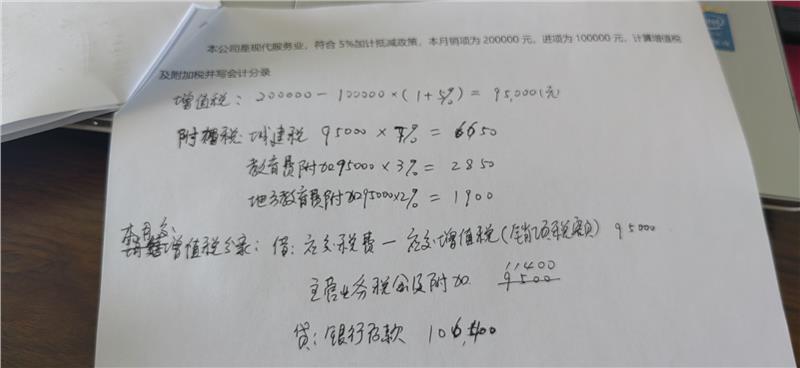 本公司是现代服务业，符合5%加计抵减政策，本月销项为200000元，进项为100000元，计算增值税
及附加税并写会计分录
增值税：200000－100000×(1+5%)＝95,000(元)
附增税：城建税 95000×7%＝6650
教育费附加95000×3%＝2850
地方教育费附加95000×2%＝1900
增值税分录：借：应交税费—应交增值税(销项税额) 95000
11400
主营业务税金及附加 9500
贷：银行存款 106,400
intel